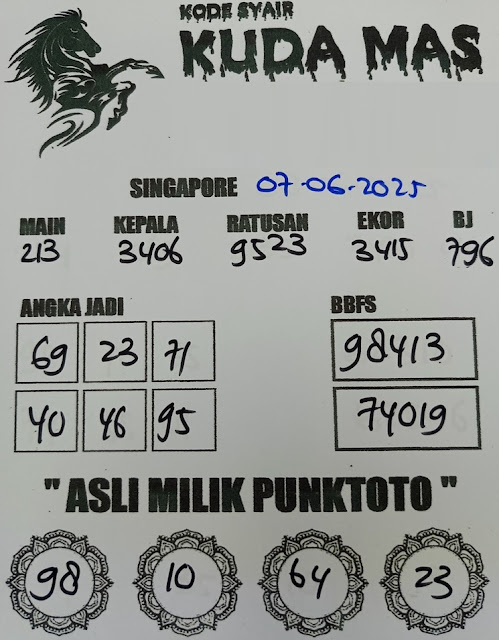 KODE SYAIR
KUDA MAS
SINGAPORE 07-06-2025
MAIN KEPALA RATUSAN EKOR BJ
213 3406 9523 3415 796
ANGKA JADI BBFS
69 23 71 98413
40 46 95 74019
" ASLI MILIK PUNKTOTO "
98 10 64 23